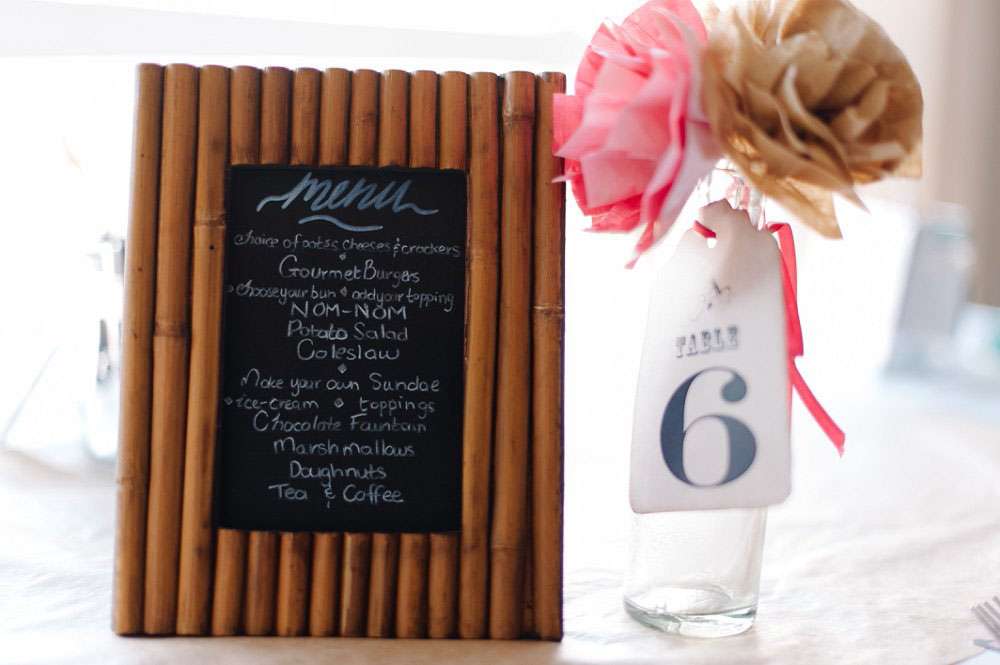 menu
Choice of pates, cheeses & crackers
Gourmet Burgers
choose your bun & add your topping
NOM-NOM
Potato Salad
Coleslaw
Make your own Sundae
ice-cream toppings
Chocolate Fountain
Marshmallows
Doughnuts
Tea & Coffee
TABLE
6